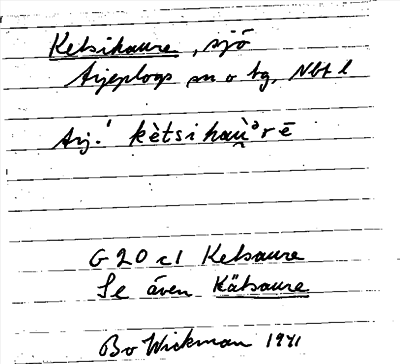 Ketsihaure, sjö
Arjeplogs sn o tg, Nbt l
Arj.' kètsihau̯ᵊrē
G20 c1 Ketsaure
Se även Kätsaure
Bo Wickman 1941